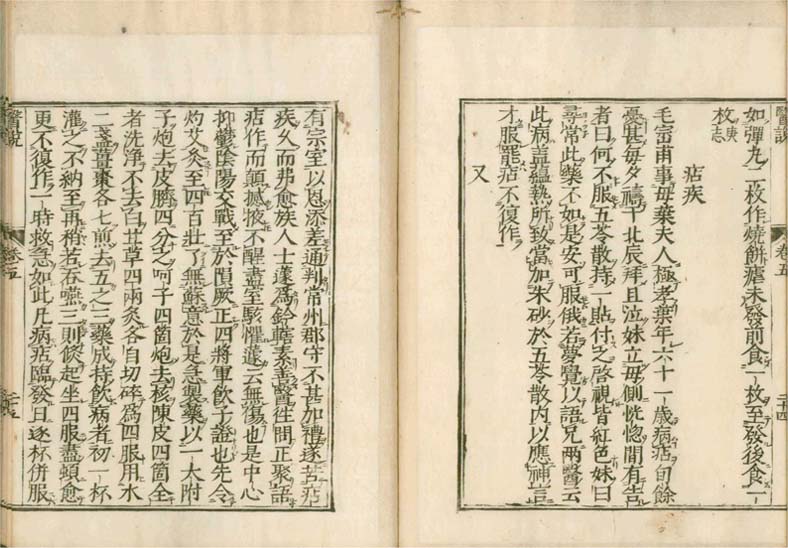 醫說
卷五
二十四
如彈丸二枚作燒餅瘧未發前食一枚至發後食一
枚庚志
痁疾
毛宻甫事母葉夫人極孝葉年六十一歲病痁旬餘
憂甚每夕禱于北辰拜且泣妹立母側恍惚間有告
者曰何不服五苓散持一貼付之啓視皆紅色妹曰
尋常此藥不如是安可服俄若夢覺以語兄兩醫云
此病蓋蘊熱所致當加朱砂於五苓散内以應神言
才服罷痁不復作
又
有宗室以恩添差通判常州郡守不甚加禮遂苦痁
疾久而弗愈族人士蘧爲鈐轄素善醫往問正聚語
痁作而顛撼掖不醒盡室駭懼蘧云無傷也是中心
抑鬱陰陽交戰至於隕厥正四將軍飲子證也先令
灼艾灸至四百壯了無蘇意於是急製藥以一大附
子炮去皮臍四分之呵子四箇炮去核陳皮四箇全
者洗淨不去白甘草四兩炙各自切碎爲四服用水
二盞薑棗各七煎去五之三藥成持飲病者初一杯
灌之不納至再稍若吞嚥三則倐起坐四服盡頓愈
更不復作一時救急如此凡病痁臨發日逐杯併服
醫說
卷五
二十五